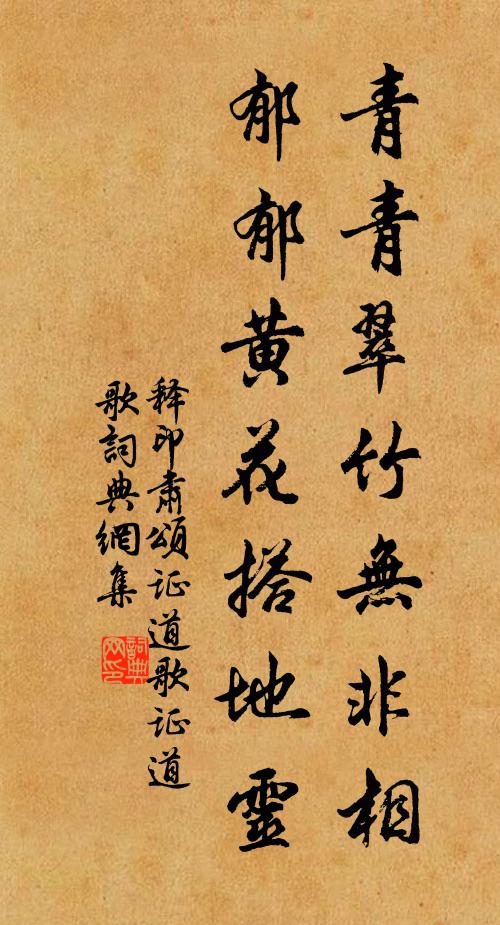 青青翠竹無非相
郁郁黄花搭地靈
释印肅頌证道歌证道
歌詞典網集
詞典网印